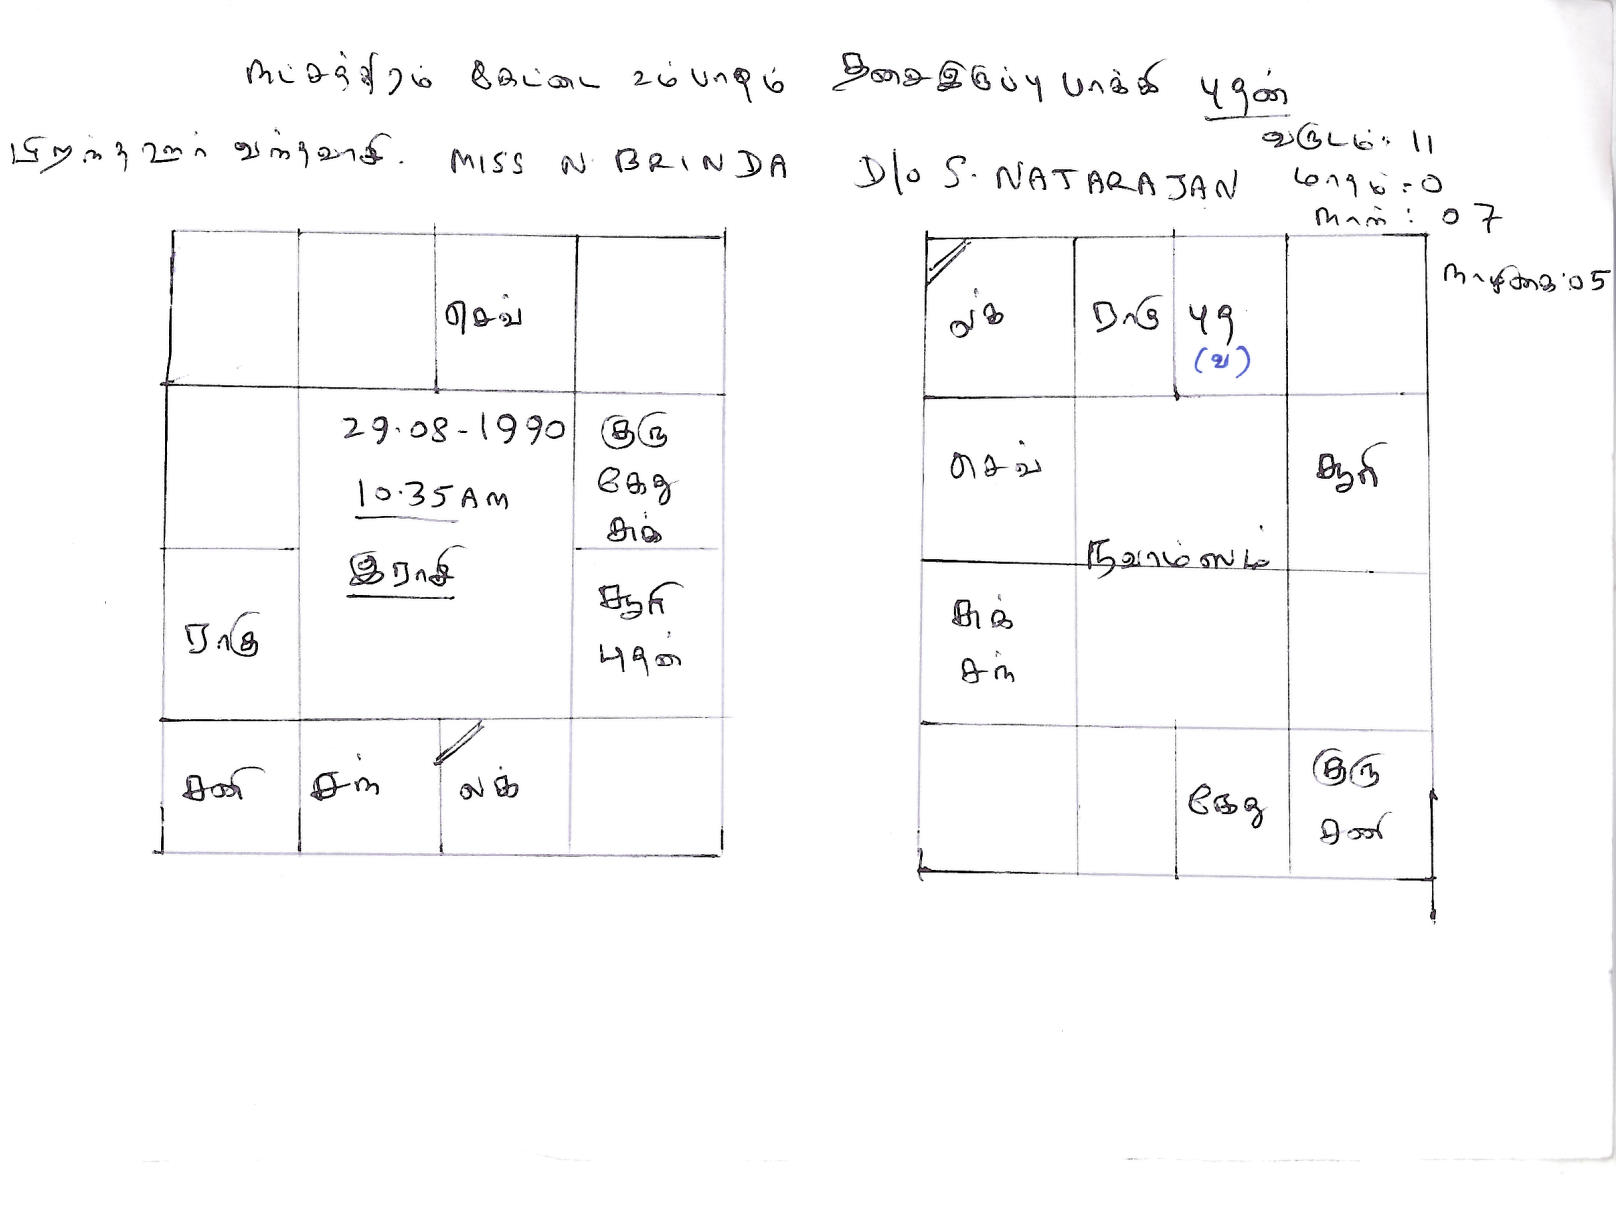 நட்சத்திரம் கேட்டை 2ம் பாதம் தசை இருப்பு பாக்கி புதன்
வருடம்: 11
பிறந்த ஊர் வந்தவாசி. MISS N. BRINDA D/o S. NATARAJAN மாதம்: 0
நாள்: 07
நாழிகை: 05
செவ்
29.08-1990
10.35 AM
இராசி
குரு
கேது
சுக்
ராகு
சூரி
புதன்
சனி
சந்
லக்
லக்
ராகு
புத
(வ)
செவ்
சூரி
நவாம்ஸம்
சுக்
சந்
கேது
குரு
சனி